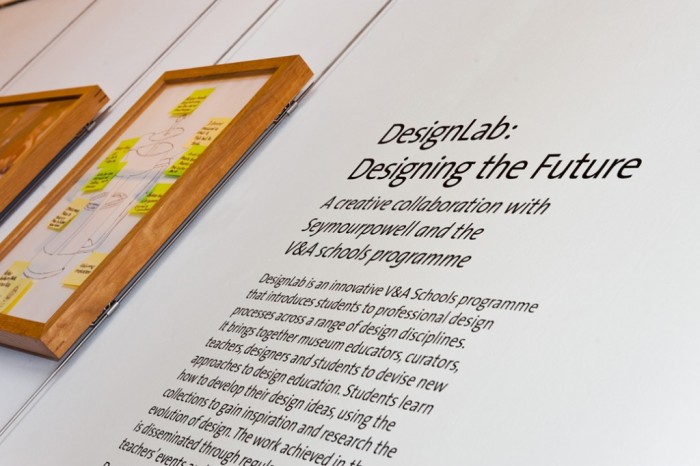 DesignLab:
Designing the Future
A creative collaboration with
Seymourpowell and the
V&A schools programme
DesignLab is an innovative V&A Schools programme
that introduces students to professional design
processes across a range of design disciplines.
It brings together museum educators, curators,
teachers, designers and students to devise new
approaches to design education. Students learn
how to develop their design ideas, using the
collections to gain inspiration and research the
evolution of design. The work achieved in th
is disseminated through regul
teachers' events a